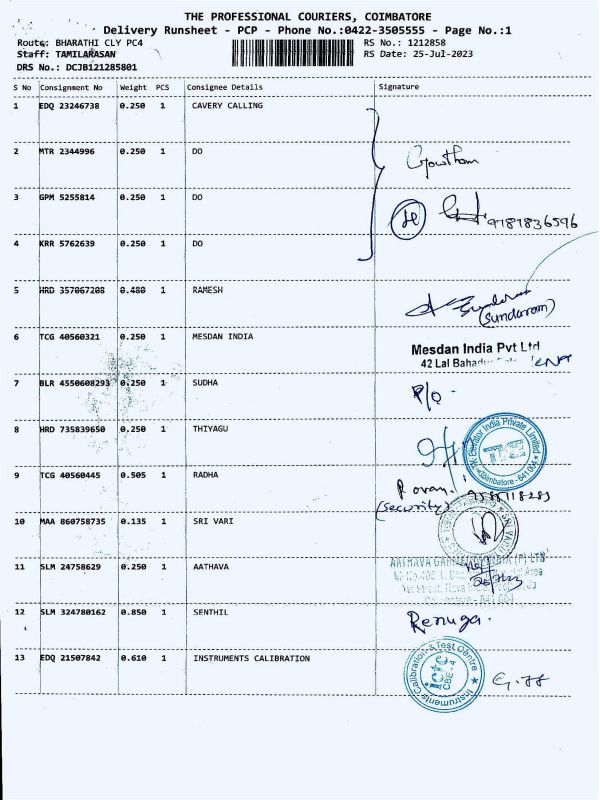 THE PROFESSIONAL COURIERS, COIMBATORE
Delivery Runsheet - PCP - Phone No.:0422-3505555 - Page No.:1
Route: BHARATHI CLY PC4 RS No.: 1212858
Staff: TAMILARASAN RS Date: 25-Jul-2023
DRS No.: DCJB121285801
S No Consignment No Weight PCS Consignee Details Signature
1 EDQ 23246738 0.250 1 CAVERY CALLING
2 MTR 2344996 0.250 1 DO Gowtham
3 GPM 5255814 0.250 1 DO 9787836596
4 KRR 5762639 0.250 1 DO
5 HRD 357067208 0.480 1 RAMESH
(Sundaram)
6 TCG 40560321 0.250 1 MESDAN INDIA Mesdan India Pvt Ltd
42 Lal Bahadur
7 BLR 4550608293 0.250 1 SUDHA P/o
8 HRD 735839650 0.250 1 THIYAGU
Elevator India Private Limited
Coimbatore - 641 004
9 TCG 40560445 0.505 1 RADHA
(Security)
10 MAA 860758735 0.135 1 SRI VARI SRI VARI
11 SLM 24758629 0.250 1 AATHAVA AATHAVA GARMENTS INDIA (P) LTD
12 SLM 324780162 0.850 1 SENTHIL Renuga.
13 EDQ 21507842 0.610 1 INSTRUMENTS CALIBRATION
Instruments Calibration & Test Centre
ictc
CBE-4